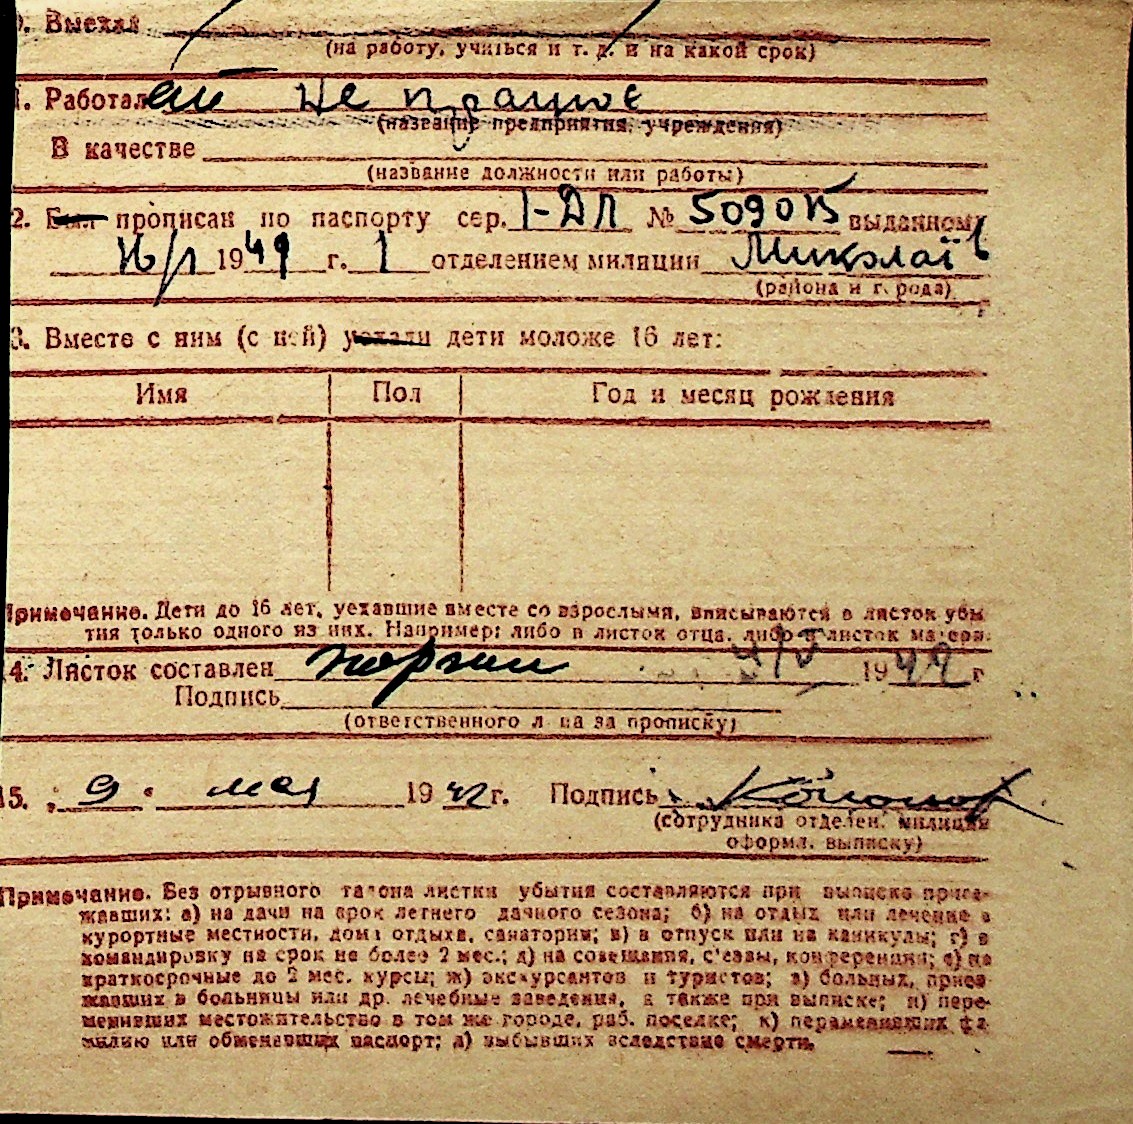 . Выехал
(на работу, учиться и т. д. и на какой срок)
1. Работал не працює
(название предприятия, учреждения)
В качестве
(название должности или работы)
2. Был прописан по паспорту сер. I-ДЛ № 509015 выданном
1949 г. 1 отделением милиции Миколаїв
(района и города)
3. Вместе с ним (с ней) уехали дети моложе 16 лет:
Имя Пол Год и месяц рождения
Примечание. Дети до 16 лет, уехавшие вместе со взрослыми, вписываются в листок убы
тия только одного из них. Например: либо в листок отца, либо в листок матери.
14. Листок составлен 4/V 1949 г
Подпись
(ответственного лица за прописку)
15. „9“ мая 19 г. Подпись
(сотрудника отделен. милиции
оформл. выписку)
Примечание. Без отрывного талона листки убытия составляются при выписке приез-
жавших: а) на дачи на срок летнего дачного сезона; б) на отдых или лечение в
курортные местности, дома отдыха, санатории; в) в отпуск или на каникулы; г) в
командировку на срок не более 2 мес.; д) на совещания, с'езды, конференции; е) на
краткосрочные до 2 мес. курсы; ж) экскурсантов и туристов; з) больных, приез
жавших в больницы или др. лечебные заведения, а также при выписке; и) пере-
менивших местожительство в том же городе, раб. поселке; к) переменивших фа-
милию или обменявших паспорт; л) выбывших вследствие смерти.